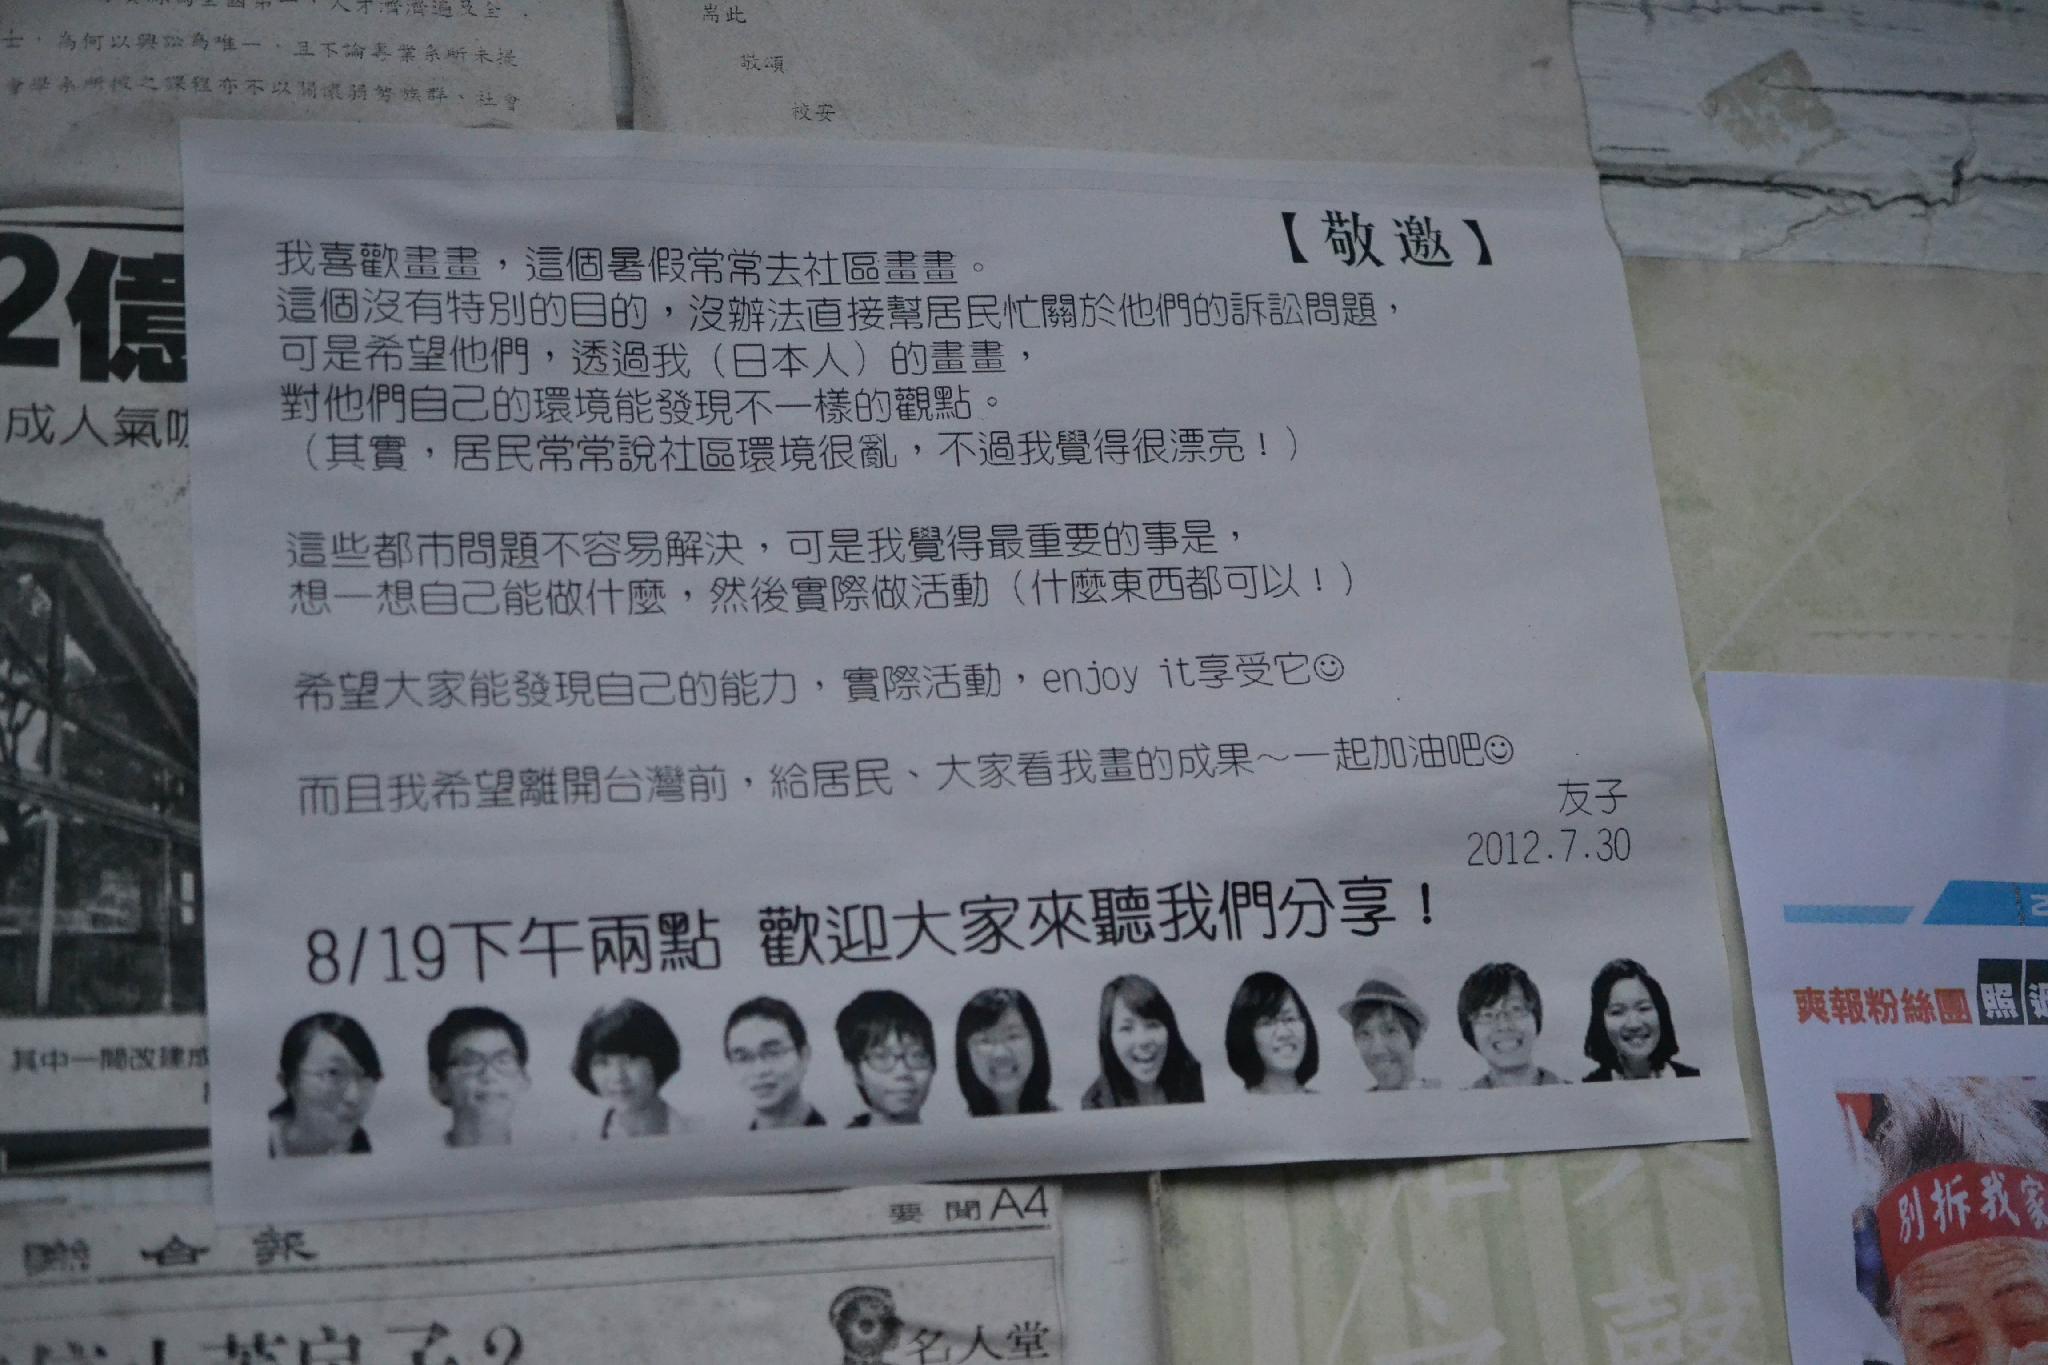 崙此
敬頌
校安
士，為何以興訟為唯一、且不論專業系所未提
會學系所授之課程亦不以關懷弱勢族群、社會
2億
成人氣
【敬邀】
我喜歡畫畫，這個暑假常常去社區畫畫。
這個沒有特別的目的，沒辦法直接幫居民忙關於他們的訴訟問題，
可是希望他們，透過我（日本人）的畫畫，
對他們自己的環境能發現不一樣的觀點。
（其實，居民常常說社區環境很亂，不過我覺得很漂亮！）
這些都市問題不容易解決，可是我覺得最重要的事是，
想一想自己能做什麼，然後實際做活動（什麼東西都可以！）
希望大家能發現自己的能力，實際活動，enjoy it享受它☺
而且我希望離開台灣前，給居民、大家看我畫的成果～一起加油吧☺
友子
2012.7.30
8/19下午兩點 歡迎大家來聽我們分享！
其中一間改建成
爽報粉絲團
照
別拆我家
要聞A4
聯合報
名人堂